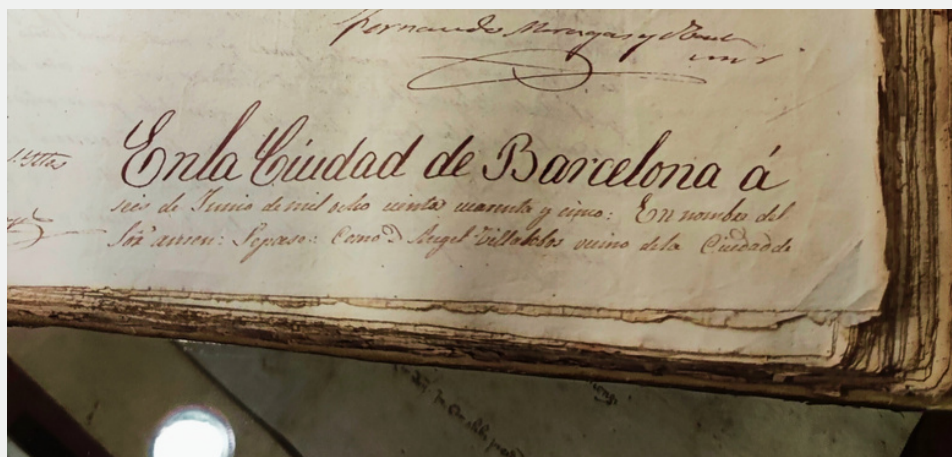 Fernando Moragas y
En la Ciudad de Barcelona á
seis de Junio de mil ocho cientos cuarenta y cinco: En nombre del
Sor. amen: Sepase: Como Dn. Angel Villalobos vecino de la Ciudad de